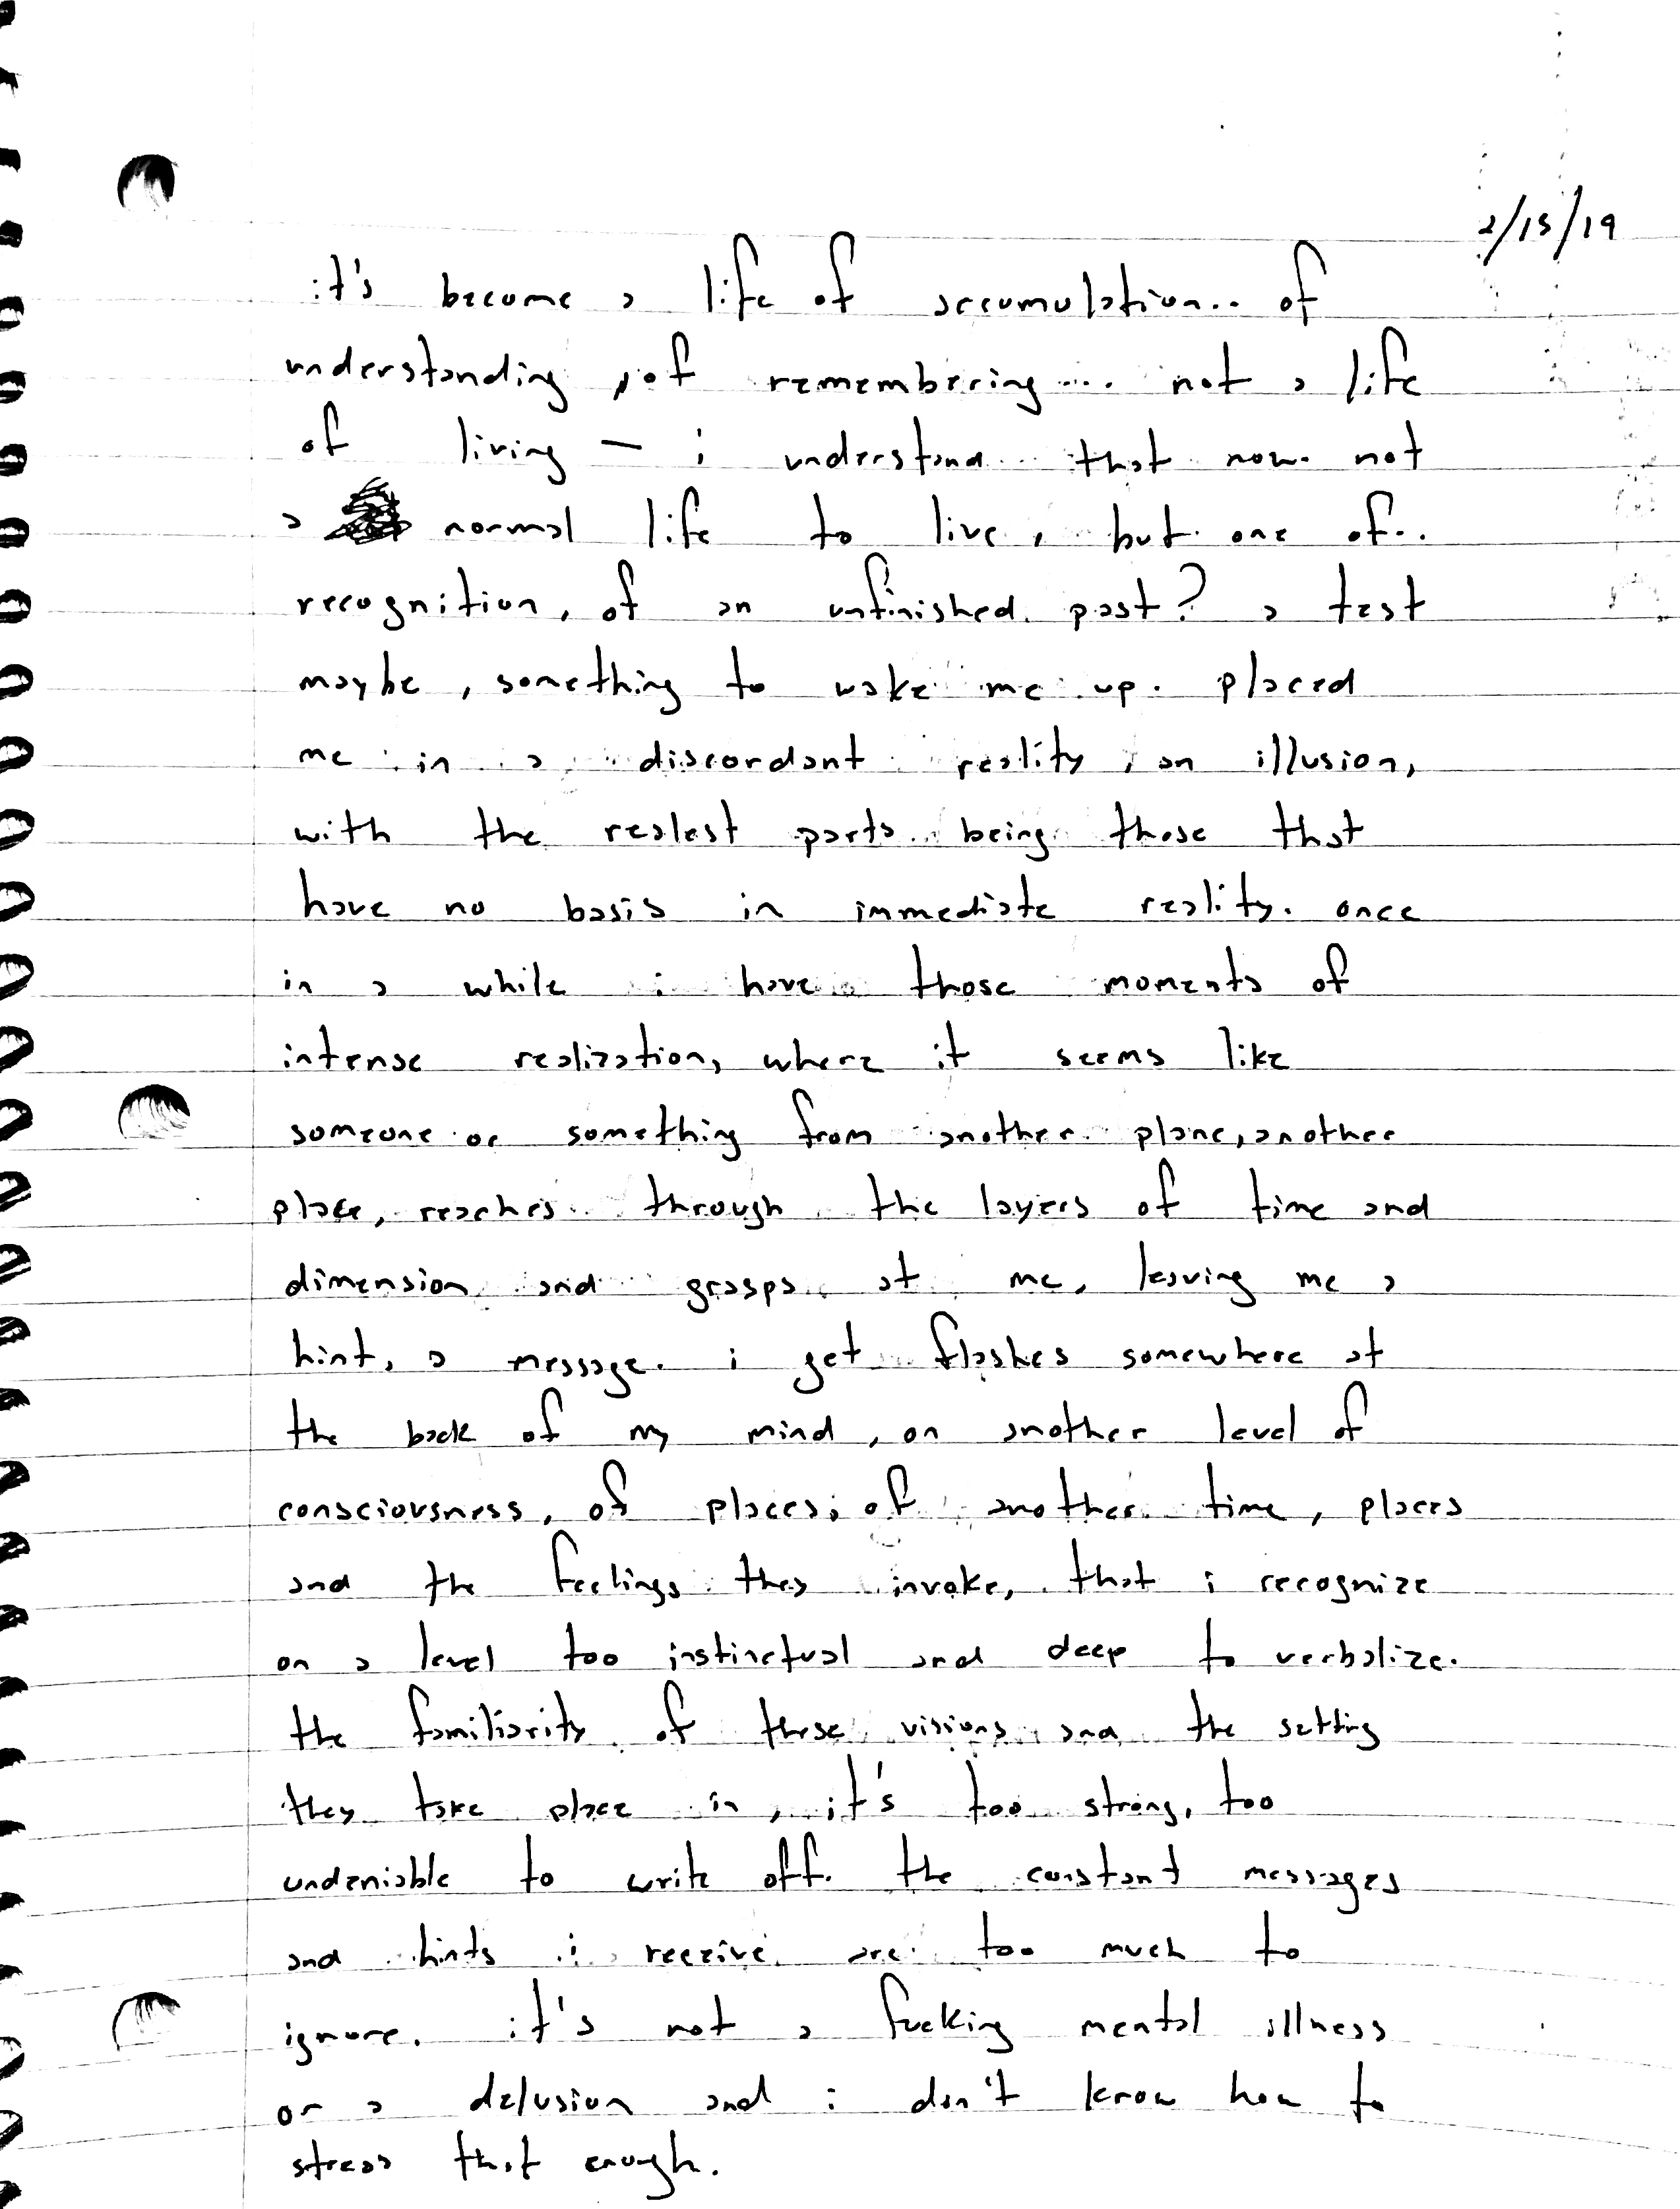 2/15/19
it's become a life of accumulation.. of
understanding, of remembering... not a life
of living — i understand that now. not
a normal life to live, but one of..
recognition, of an unfinished past? a test
maybe, something to wake me up. placed
me in a discordant reality, an illusion,
with the realest parts being those that
have no basis in immediate reality. once
in a while i have those moments of
intense realization, where it seems like
someone or something from another plane, another
place, reaches through the layers of time and
dimension and grasps at me, leaving me a
hint, a message. i get flashes somewhere at
the back of my mind, on another level of
consciousness, of places, of another time, places
and the feelings they invoke, that i recognize
on a level too instinctual and deep to verbalize.
the familiarity of these visions and the setting
they take place in, it's too strong, too
undeniable to write off. the constant messages
and hints i receive are too much to
ignore. it's not a fucking mental illness
or a delusion and i don't know how to
stress that enough.